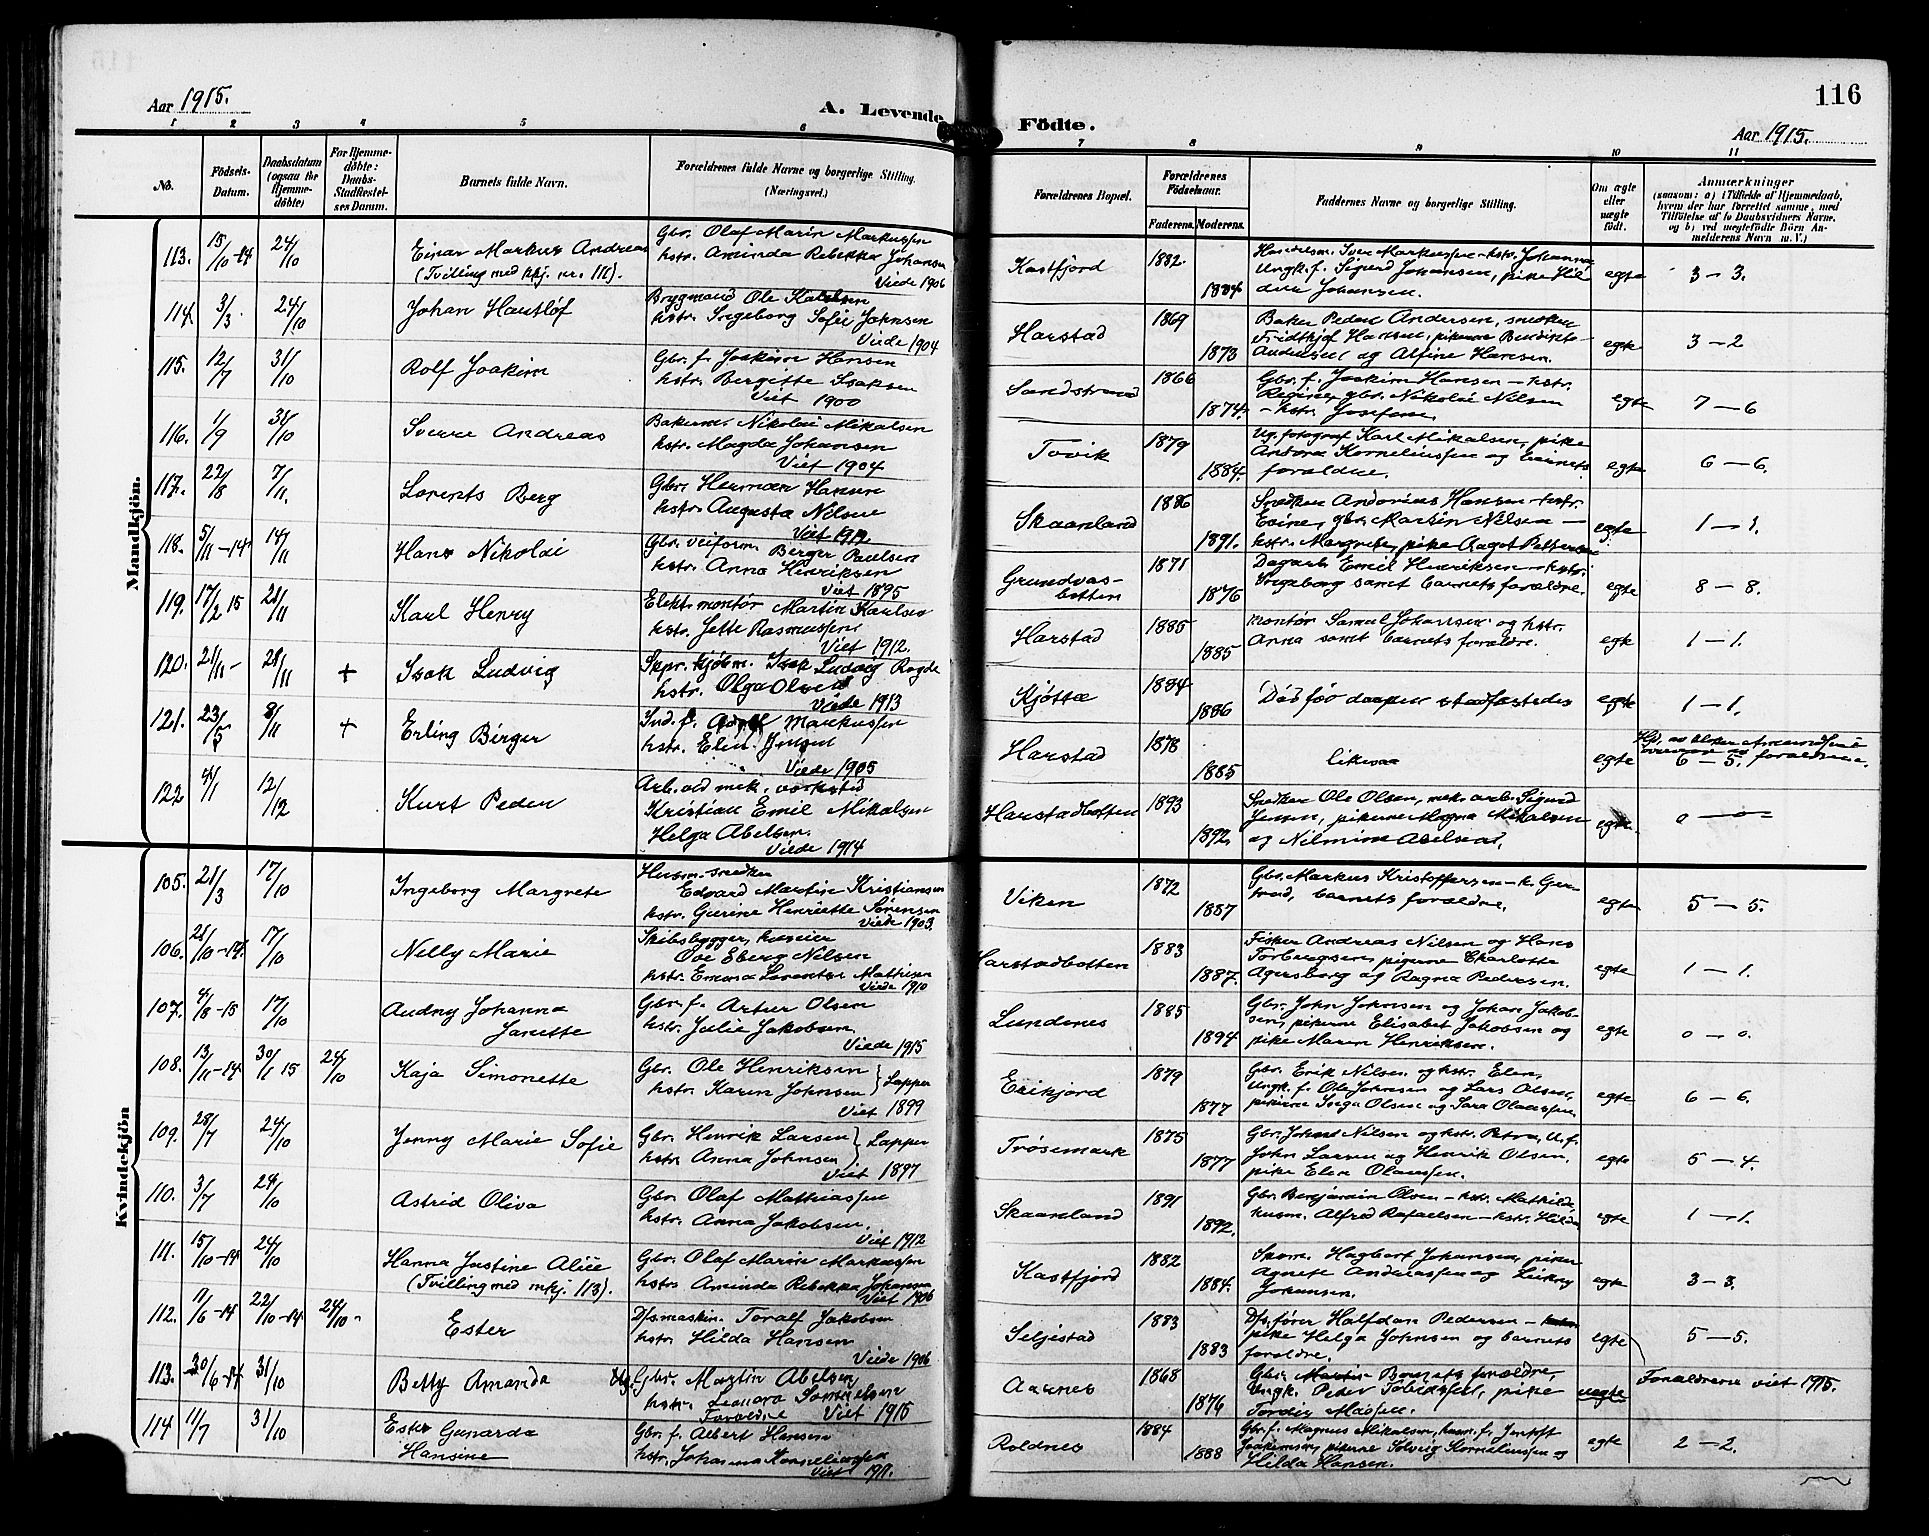 116
Aar 1915.
A. Levende
Födte.
Aar 1915.
1 2 3 4 5 6
7 8 9 10 11
No.
Födsels-
Datum.
Daabsdatum
(ogsaa for
Hjemme-
döbte)
For Hjemme-
döbte:
Daabs-
Stadfæstel-
ses Datum.
Barnets fulde Navn.
Forældrenes fulde Navne og borgerlige Stilling.
(Næringsvei.)
Forældrenes Bopæl.
Forældrenes
Födselsaar.
Faderens. Moderens.
Faddernes Navne og borgerlige Stilling.
Om ægte
eller
uægte
födt.
Anmærkninger
(saasom: a) i Tilfælde af Hjemmedaab,
hvem der har forrettet samme, med
Tilföielse af to Daabsvidners Navne,
og b) ved uægtefödte Börn An-
melderens Navn m. V.)
Mandkjön.
113. 15/10-14 24/10
Einar Markus Andreas
(Tvilling med kkj. nr. 111).
Gbr. Olaf Marin Markussen
hstr. Aminda Rebekka Johansen
Viede 1906
Kastfjord 1882. 1884
Ungk. f. Sigurd Johansen, pike Hil
Johansen.
egte 3-3.
114. 3/3. 24/10
Johan Hartlöf
Brygmand Ole Karlsen
hstr. Ingeborg Sofie Johnsen
Viede 1904
Harstad 1869 1873
Baker Peder Andersen, snedker
Fridthjof Hansen, pikerne Bendikte
Andersen og Alfine Hansen.
egte 3-2
115. 12/7 31/10
Rolf Joakim
Gbr. f. Joakim Hansen
hstr. Bergitte Isaksen
Viet 1900
Sandstrand 1866 1874.
Gbr. f. Joakim Hansen - hstr.
Regine, gbr. Nikolai Nilsen
- hstr. Josefane.
egte 7-6
116. 1/9 31/10
Sverre Andreas
Bakerm. Nikolai Mikalsen
hstr. Magda Johansen
Viet 1904
Tovik 1879 1884.
Ug. fotograf Karl Mikalsen, pike
Andora Korneliussen og barnets
forældre.
egte 6-6.
117. 22/8 7/11.
Lorents Berg
Gbr. Herman Hansen
hstr. Augusta Nilsen
Viet 1912
Skaanland 1886 1891.
Snedker Andorius Hansen - hstr.
Evine, gbr. Martin Nilsen -
hstr. Margrete, pike Aagot Pettersen
egte 1-1.
118. 5/11-14 14/11
Hans Nikolai
Gbr. veiform. Berger Paulsen
hstr. Anna Henriksen
Viet 1895
Grundvas-
botten 1871 1876
Dagarb. Emil Henriksen - hstr.
Ingeborg samt barnets forældre.
egte 8-8.
119. 17/2 15 21/11
Karl Henry
Elekt. montör Martin Karlsen
hstr. Jette Rasmussen
Viet 1912.
Harstad 1885 1885
montör Samuel Johansen og hstr.
Anna samt barnets forældre.
egte 1-1.
120. 21/11- 28/11 +
Isak Ludvig
Skpr. kjöbm. Isak Ludvig Rogde
hstr. Olga Olsen
Viede 1913
Kjøtta 1884 1886
Död før daapen stadfæstedes
egte 1-1.
121. 23/5 8/11 +
Erling Birger
Ind. f. Adolf Markussen
hstr. Elen Jensen
Viede 1905
Harstad 1878 1885
likesaa
egte 6-5. forældrene.
122 4/1 12/12
Kurt Peder
Arb. ved mek. verksted
Kristian Emil Mikalsen
Helga Abelsen.
Viede 1914
Harstadbotten 1893 1892.
Snedker Ole Olsen, mek. arb. Sigurd
Jensen, pikerne Magna Mikalsen
og Nilmine Abelsen.
egte. 0-0
Kvindekjön
105. 21/3 17/10
Ingeborg Margrete
Husm. snedker
Edvard Martin Kristiansen
hstr. Gurine Henriette Sørensen
Viede 1903.
Viken 1872 1887
Gbr. Markus Kristoffersen - h. Ger
trud, barnets forældre.
egte 5-5.
106. 28/10-14. 17/10
Nelly Marie
Skibsbygger, huseier
Ove Eberg Nilsen
hstr. Emma Lorentse Mathisen
Viede 1910
Harstadbotten 1883 1887.
Fisker Andreas Nilsen og Hans
Torbergsen, pigerne Charlotte
Agersborg og Ragna Pedersen.
egte 1-1.
107. 4/8-15 17/10
Audny Johanna
Janette
Gbr. f. Artur Olsen
hstr. Julie Jakobsen
Viede 1915
Lundenes 1885 1894
Gbr. John Johnsen og Johan Jakob-
sen, pikerne Elisabet Jakobsen og
pike Maren Henriksen.
egte 0-0.
108. 13/11-14 30/1 15 24/10
Kaja Simonette
Gbr. Ole Henriksen
hstr. Karen Johnsen } Lapper
Viet 1899
Erikjord 1879 1877
Gbr. Erik Nilsen og hstr. Elen,
Ungk. f. Ole Johnsen og Lars Olsen,
pikerne Inga Olsen og Sara Olaussen.
egte 6-6.
109. 28/7 24/10
Jenny Marie Sofie
Gbr. Henrik Larsen
hstr. Anna Johnsen } Lapper
Viet 1897
Trøsemark 1875 1877
Gbr. Johan Nilsen og hstr. Petra, U. f.
John Larsen og Henrik Olsen,
pike Elen Olaussen.
egte 5-4.
110. 3/7 24/10
Astrid Oliva
Gbr. Olaf Mathiassen
hstr. Anna Jakobsen.
Viet 1912
Skaanland 1891 1892.
Gbr. Benjamin Olsen - hstr. Mathilde,
husm. Alfred Rafaelsen - hstr. Hilda
egte 1-1.
111. 15/10-14 24/10
Hanna Justine Alice
(Tvilling med mkj. 113).
Gbr. Olaf Marin Markussen
hstr. Aminda Rebekka Johansen
Viet 1906
Kastfjord 1882 1884.
Hagbart Johansen, piker
Agnete Andreassen og
Johansen.
egte 3-3.
112. 11/6-14 22/10-14 24/10-
Ester
Dfs. maskin. Toralf Jakobsen
hstr. Hilda Hansen
Viede 1906
Seljestad 1883 1883
Dfs. fører Halfdan Pedersen -
pike Helga Johnsen og barnets
forældre.
egte 5-5.
113. 30/6-14 31/10
Betty Amanda
Ug. Gbr. Martin Abelsen
hstr. Leonora Samuelsen
Forældre Viet 1915
Aasnes 1868 1876
Gbr. Martin Barnets forældre,
Ungk. Peder Tobiassen, pike
Tordis Madsen.
uegte
Forældrene viet 1915.
114 11/7 31/10
Ester Gunarda
Hansine
Gbr. f. Albert Hansen
hstr. Johanna Korneliussen
Viet 1911.
Roldnes 1884 1888
Gbr. f. Magnus Mikalsen, husm. f. Jentoft
Joakimsen, pikerne Solveig Korneliussen og
Hilda Hansen.
egte 2-2.